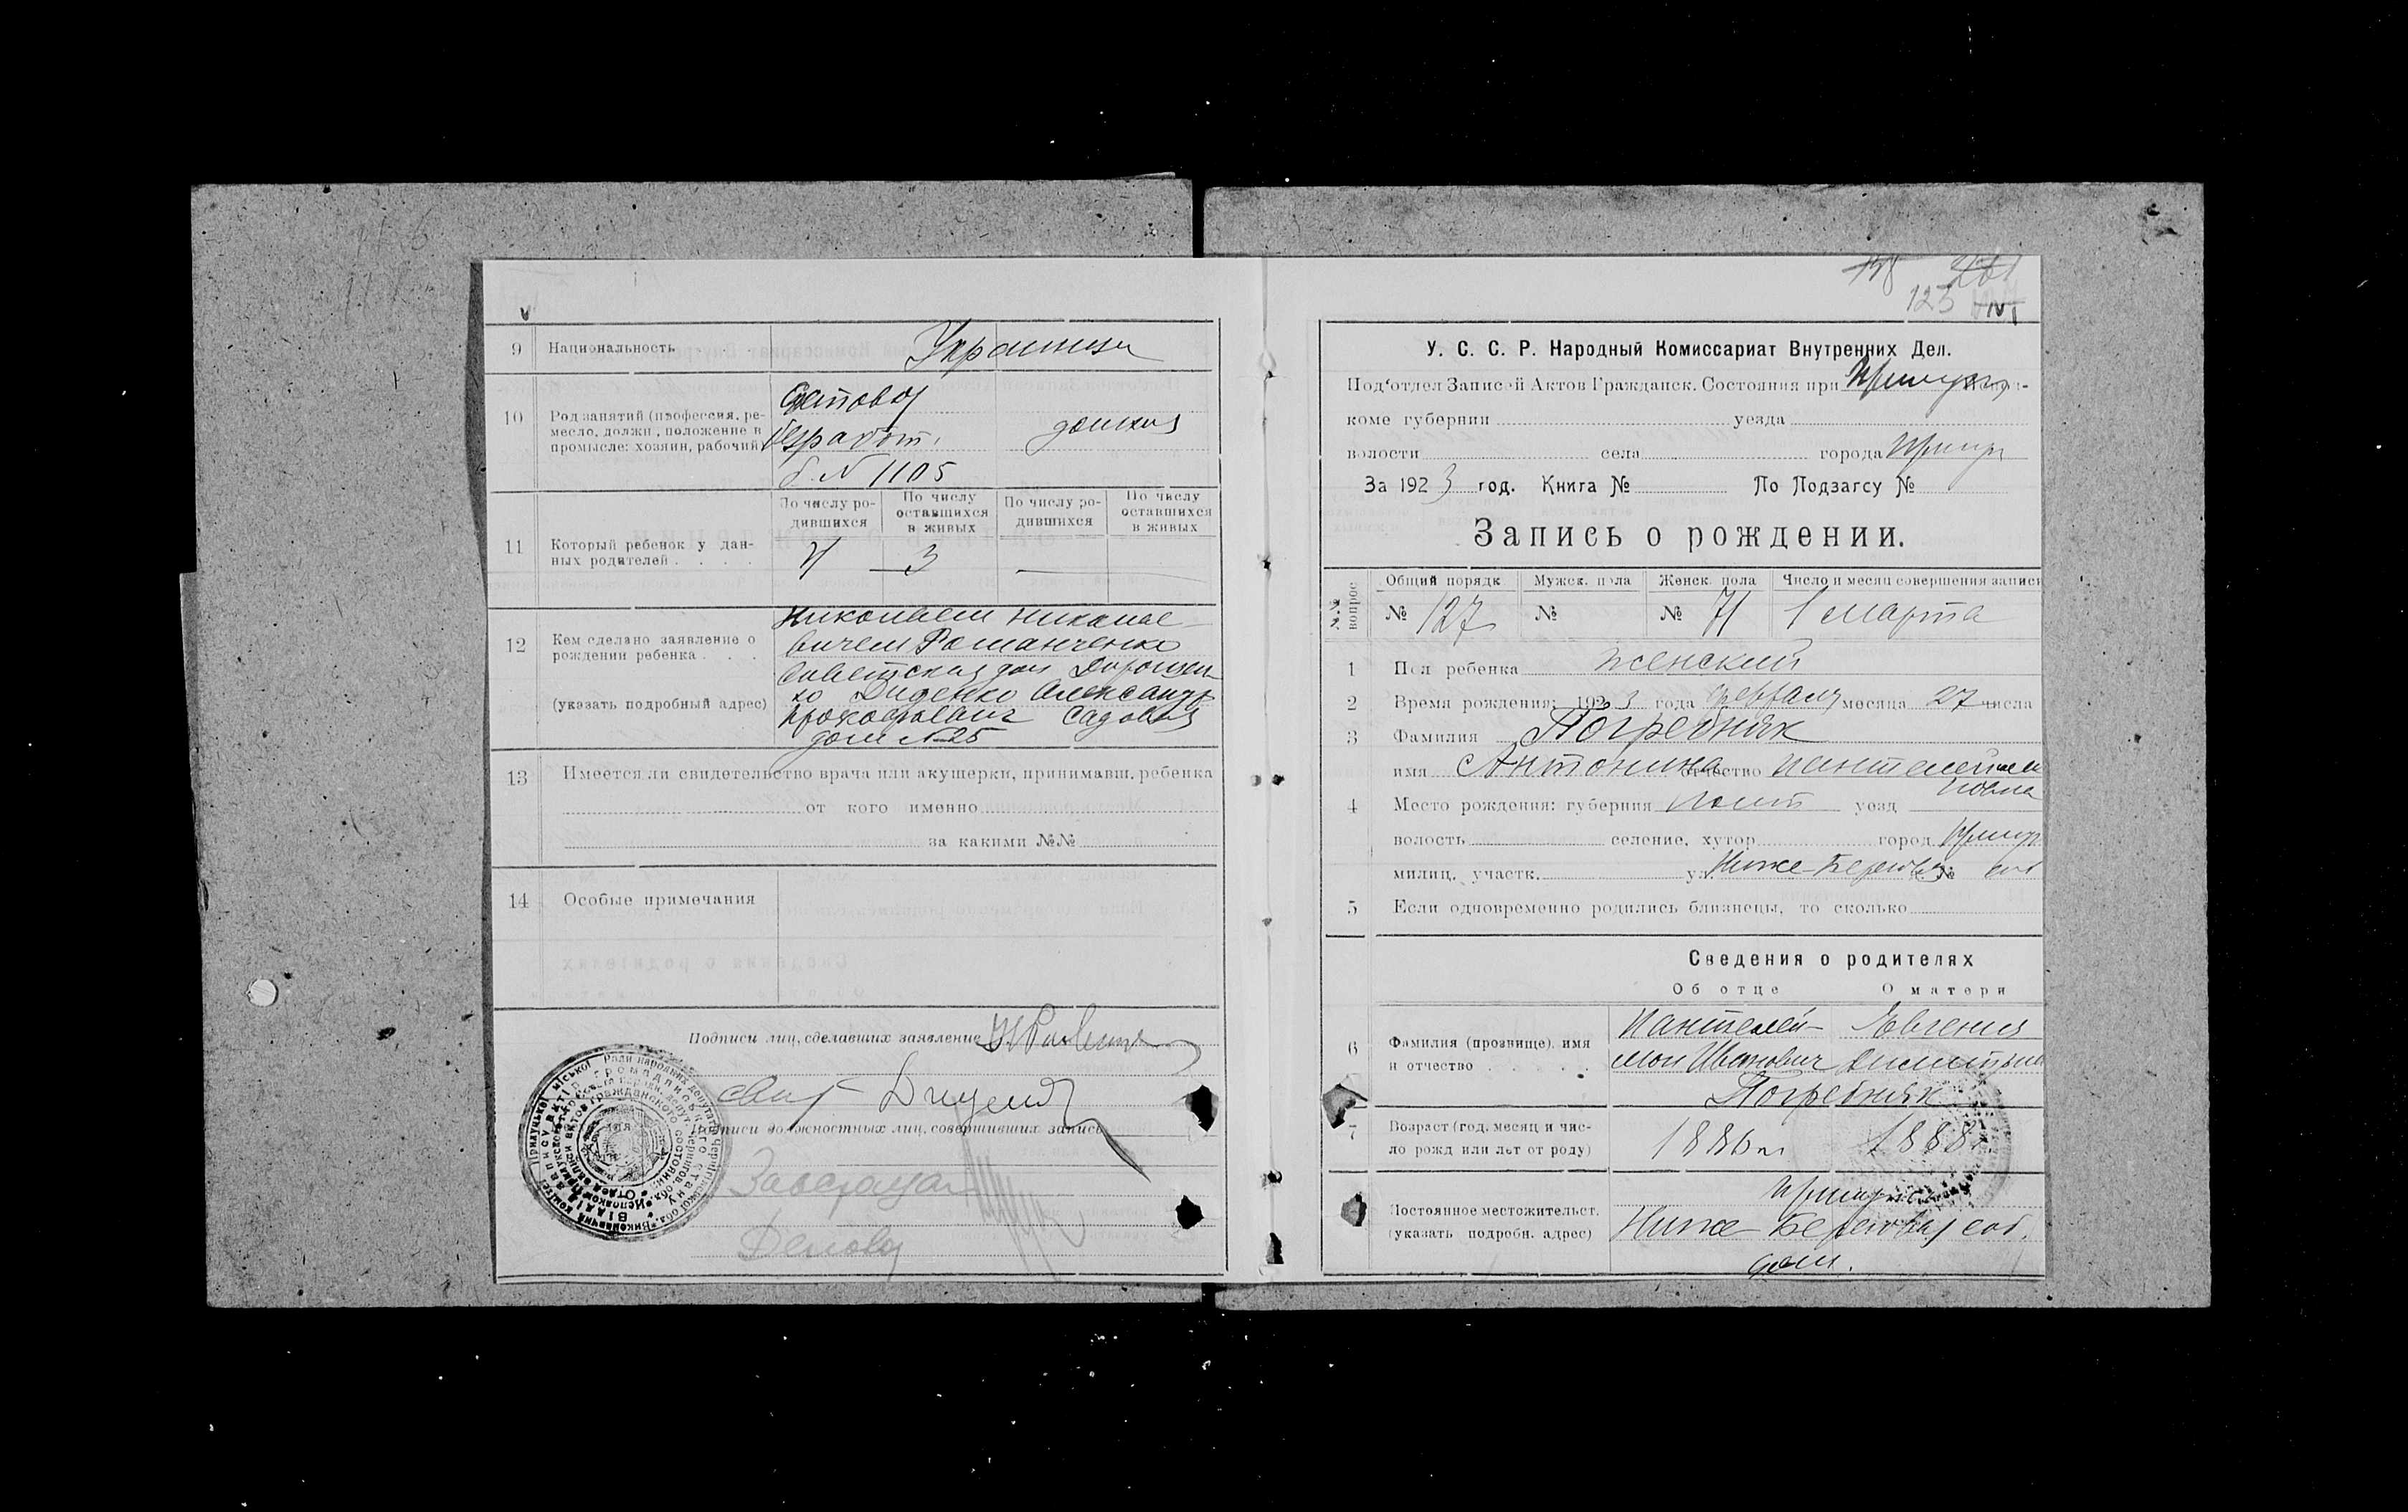 9 Национальность Украинцы
10 Род занятий (профессия, ре-
месло, должн., положение в
промысле: хозяин, рабочий)
безработ.
б. № 1105
домхоз
11 Который ребенок у дан-
ных родителей . . . .
По числу ро-
дившихся
По числу
оставшихся
в живых
По числу ро-
дившихся
По числу
оставшихся
в живых
4 3 —
12 Кем сделано заявление о
рождении ребенка . . .
(указать подробный адрес)
Николаем Николае-
вичем Романченко
Советская дом Дорошен-
ко Диденко Александр
Прокофьевич Садовая
дом № 25
13 Имеется ли свидетельство врача или акушерки, принимавш. ребенка
от кого именно
за какими №№
14 Особые примечания
Подписи лиц, сделавших заявление
Подписи должностных лиц, совершивших запись
Завзагсом
123
У. С. С. Р. Народный Комиссариат Внутренних Дел.
Под'отдел Записей Актов Гражданск. Состояния при
коме губернии уезда
волости села города
За 1923 год. Книга № По Подзагсу №
Запись о рождении.
№№ вопрос
Общий порядк Мужск. пола Женск. пола Число и месяц совершения записи
№ 127 № № 71 1 марта
1 Пол ребенка женский
2 Время рождения: 1923 года февраля месяца 27 числа
3 Фамилия Погребняк
имя Антонина отчество Пантелеймо
новна
4 Место рождения: губерния Полт уезд
волость селение, хутор город
милиц. участк. ул. Ниже-Береговая № соб
5 Если одновременно родились близнецы, то сколько
Сведения о родителях
Об отце О матери
6 Фамилия (прозвище), имя
и отчество . . . . .
Пантелей- Евгения
мон Иванович
Погребняк
7 Возраст (год, месяц и чис-
ло рожд или лет от роду)
1886 г. 1888
Постоянное местожительст.
(указать подробн. адрес)
Ниже-Береговая соб.
дом.